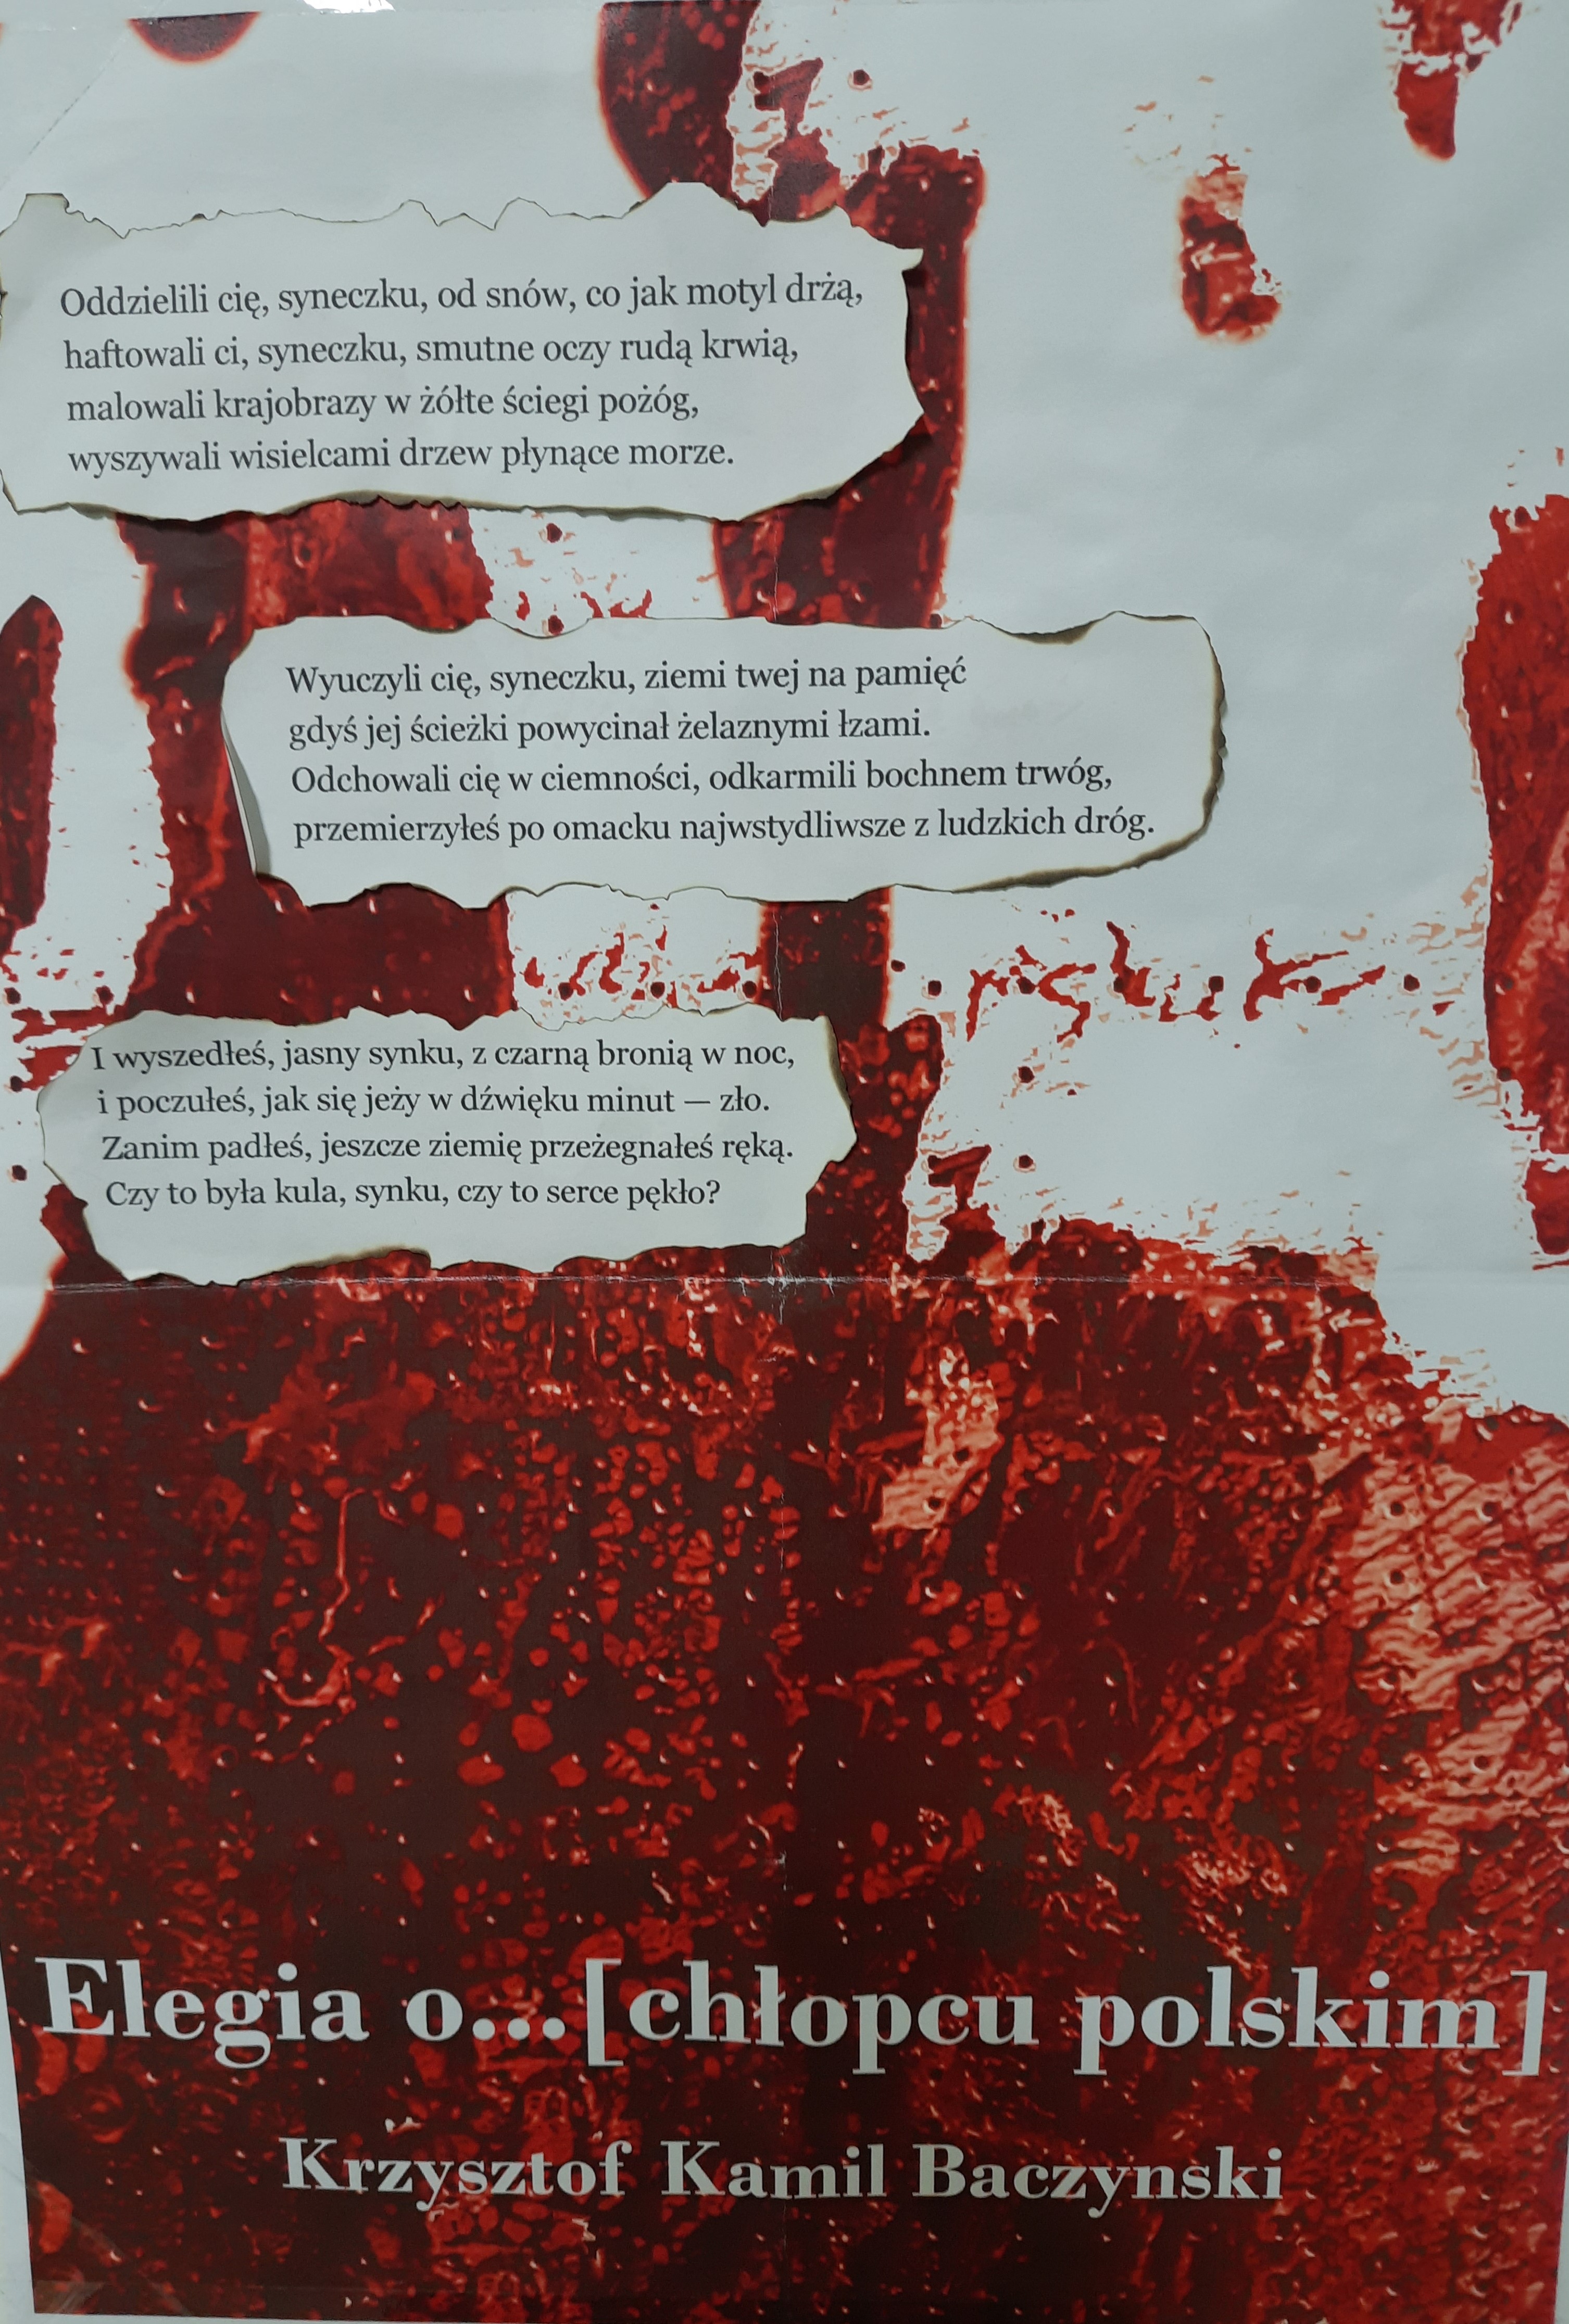 Oddzielili cię, syneczku, od snów, co jak motyl drżą,
haftowali ci, syneczku, smutne oczy rudą krwią,
malowali krajobrazy w żółte ściegi pożóg,
wyszywali wisielcami drzew płynące morze.
Wyuczyli cię, syneczku, ziemi twej na pamięć
gdyś jej ścieżki powycinał żelaznymi łzami.
Odchowali cię w ciemności, odkarmili bochnem trwóg,
przemierzyłeś po omacku najwstydliwsze z ludzkich dróg.
I wyszedłeś, jasny synku, z czarną bronią w noc,
i poczułeś, jak się jeży w dźwięku minut — zło.
Zanim padłeś, jeszcze ziemię przeżegnałeś ręką.
Czy to była kula, synku, czy to serce pękło?
Elegia o...[chłopcu polskim]
Krzysztof Kamil Baczynski